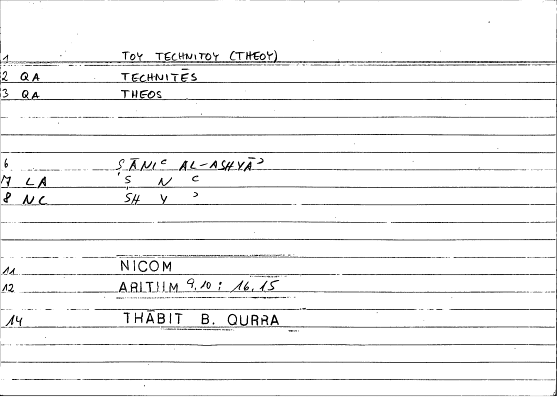 1 TOY TECHNITOY (THEOY)
2 QA TECHNITĒS
3 QA THEOS
6 ṢĀNIᶜ AL-ASHYĀʾ
7 LA Ṣ N ᶜ
8 NC SH Y ʾ
11 NICOM
12 ARITHM 9,10 : 16,15
14 THĀBIT B. QURRA